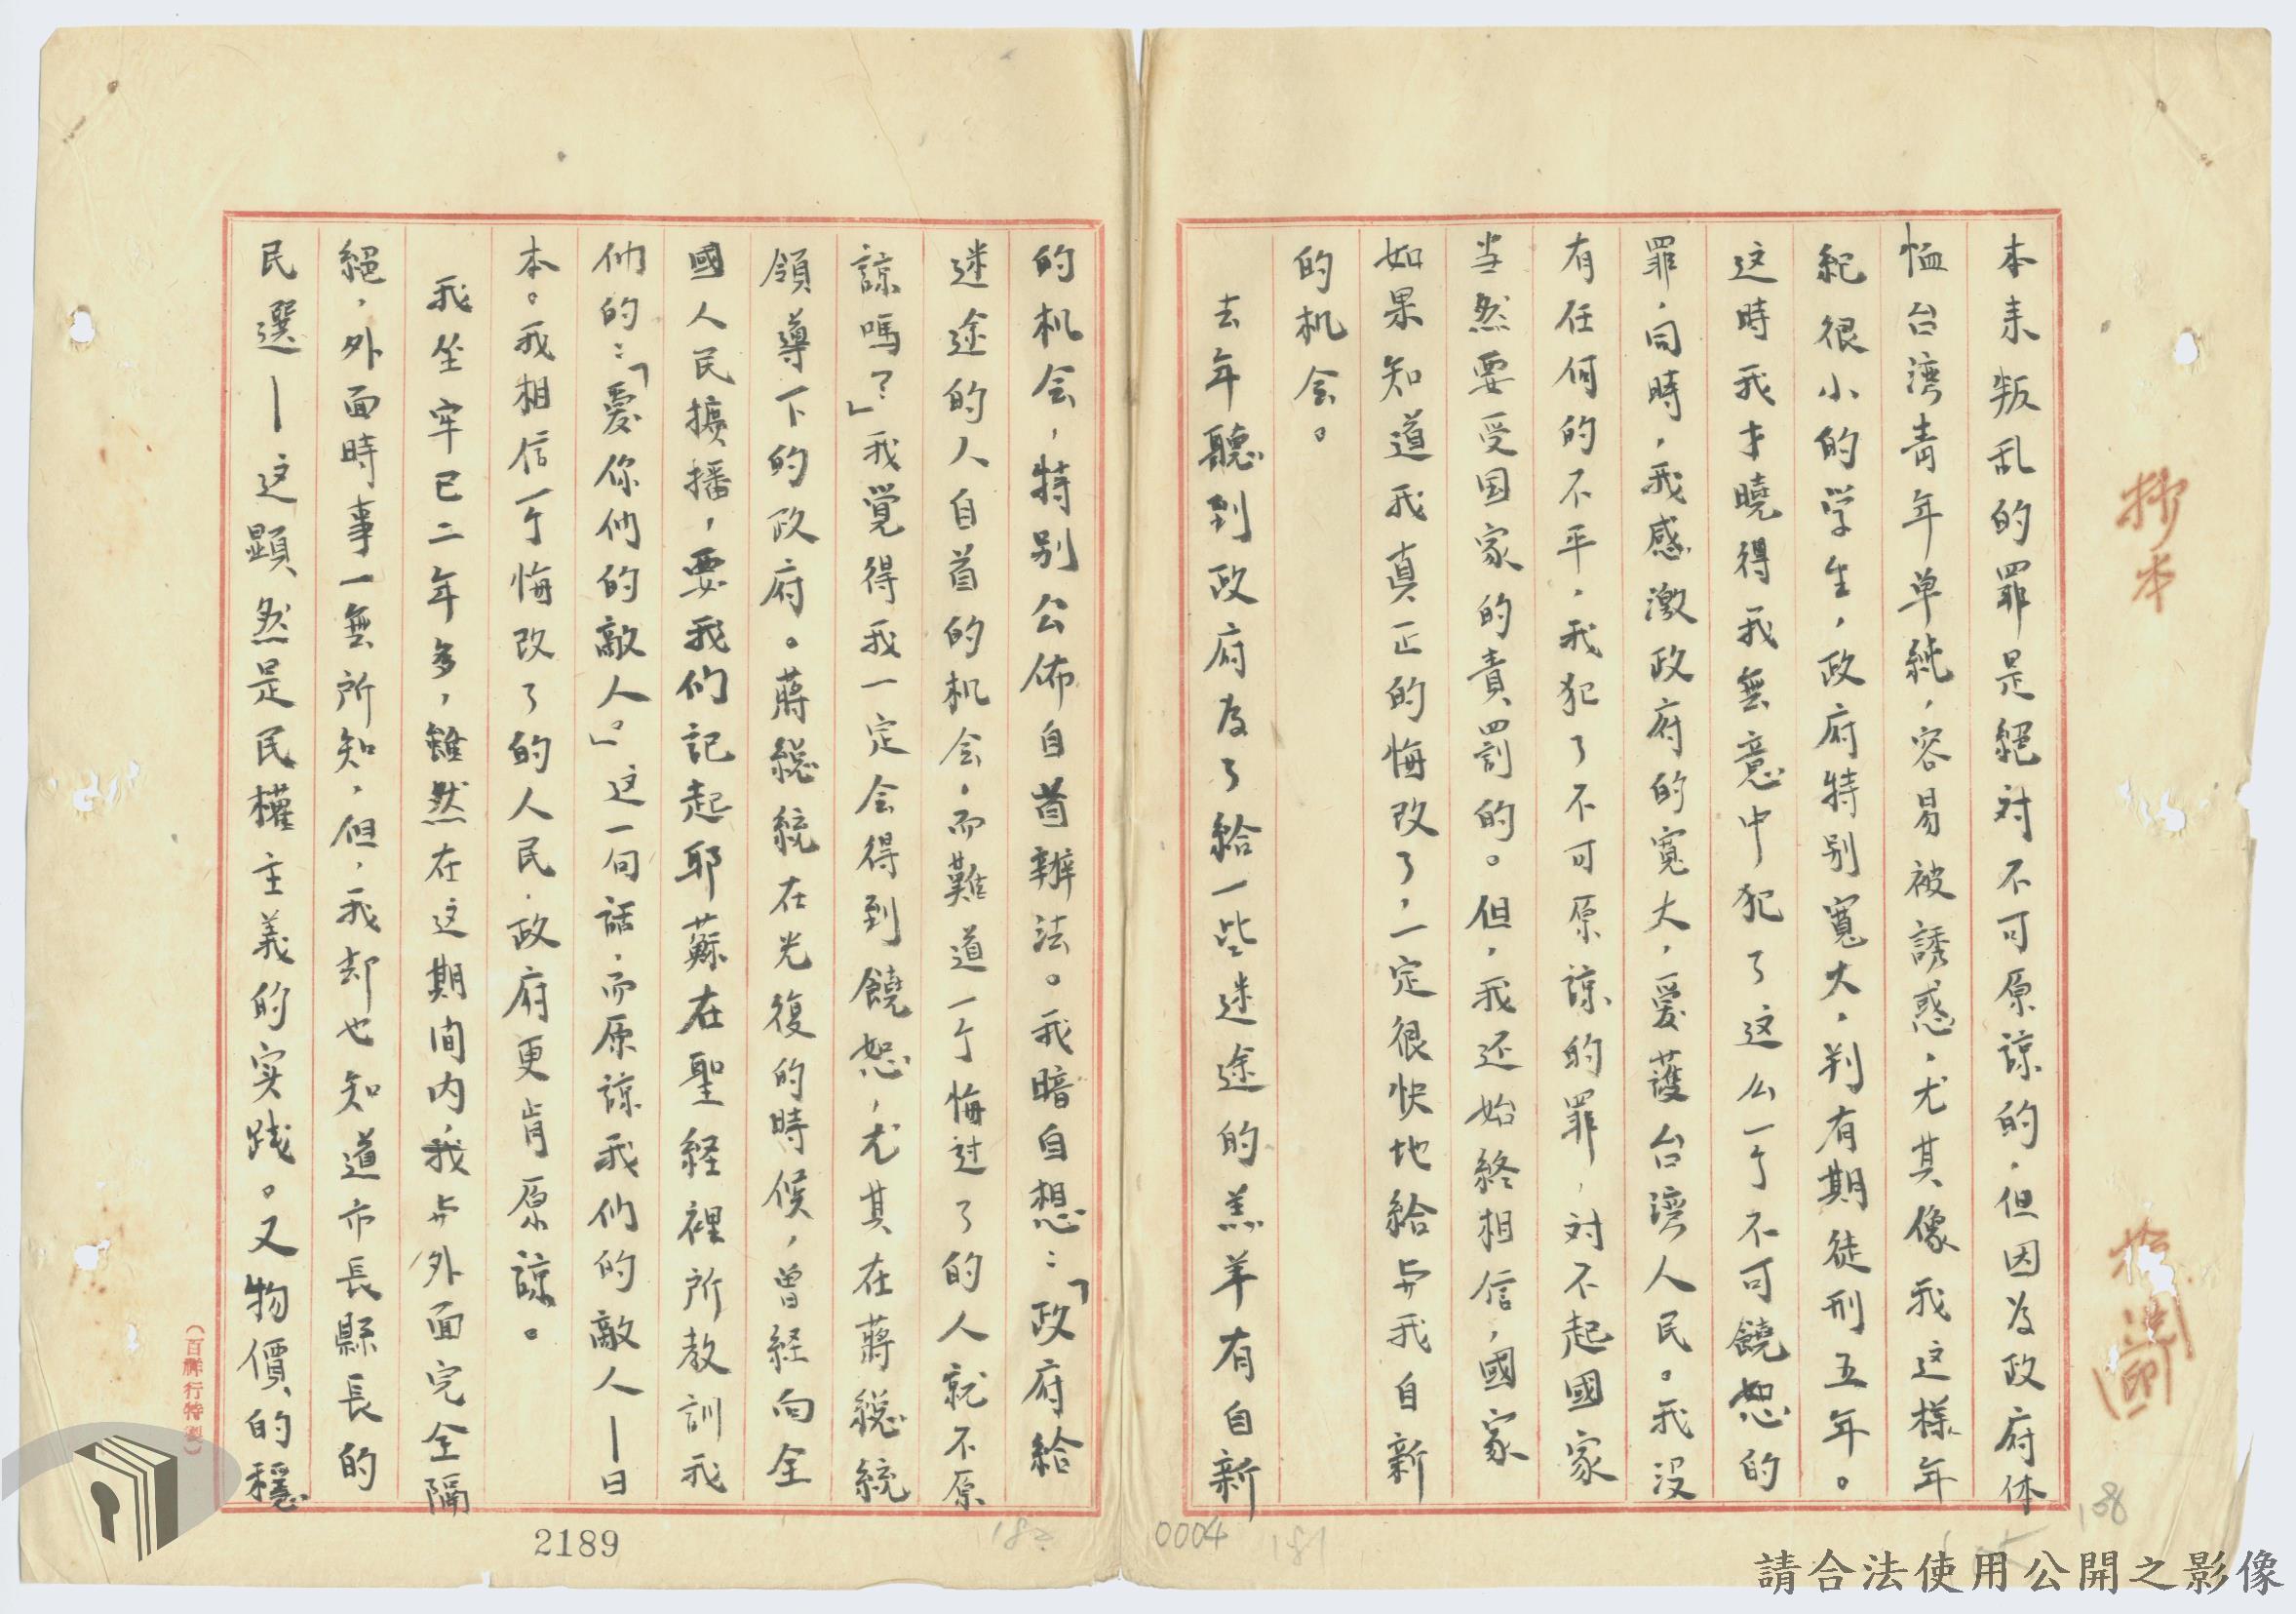 本来叛乱的罪是絕対不可原諒的，但因为政府体
恤台湾青年单純，容易被誘惑，尤其像我这樣年
紀很小的学生，政府特别寬大，判有期徒刑五年。
这時我才曉得我無意中犯了这么一个不可饒恕的
罪，同時，我感激政府的寬大，爱護台灣人民。我没
有任何的不平，我犯了不可原諒的罪，対不起國家
当然要受国家的責罰的。但，我还始終相信，國家
如果知道我真正的悔改了，一定很快地給与我自新
的机会。
去年聽到政府为了給一些迷途的羔羊有自新
的机会，特别公佈自首辦法。我暗自想：「政府給
迷途的人自首的机会，而難道一个悔过了的人就不原
諒嗎？」我覚得我一定会得到饒恕，尤其在蔣総統
領導下的政府。蔣総統在光復的時候，曾経向全
國人民擴播，要我们記起耶蘇在聖経裡所教訓我
们的：「愛你们的敵人。」这一句話，而原諒我们的敵人—日
本。我相信一个悔改了的人民，政府更肯原諒。
我坐牢已二年多，雖然在这期间内，我与外面完全隔
絕，外面時事一無所知，但，我却也知道市長縣長的
民選—这顕然是民權主義的实践。又物價的穩
抄本
(百祥行特製)
2189
182
0004
181
108
請合法使用公開之影像